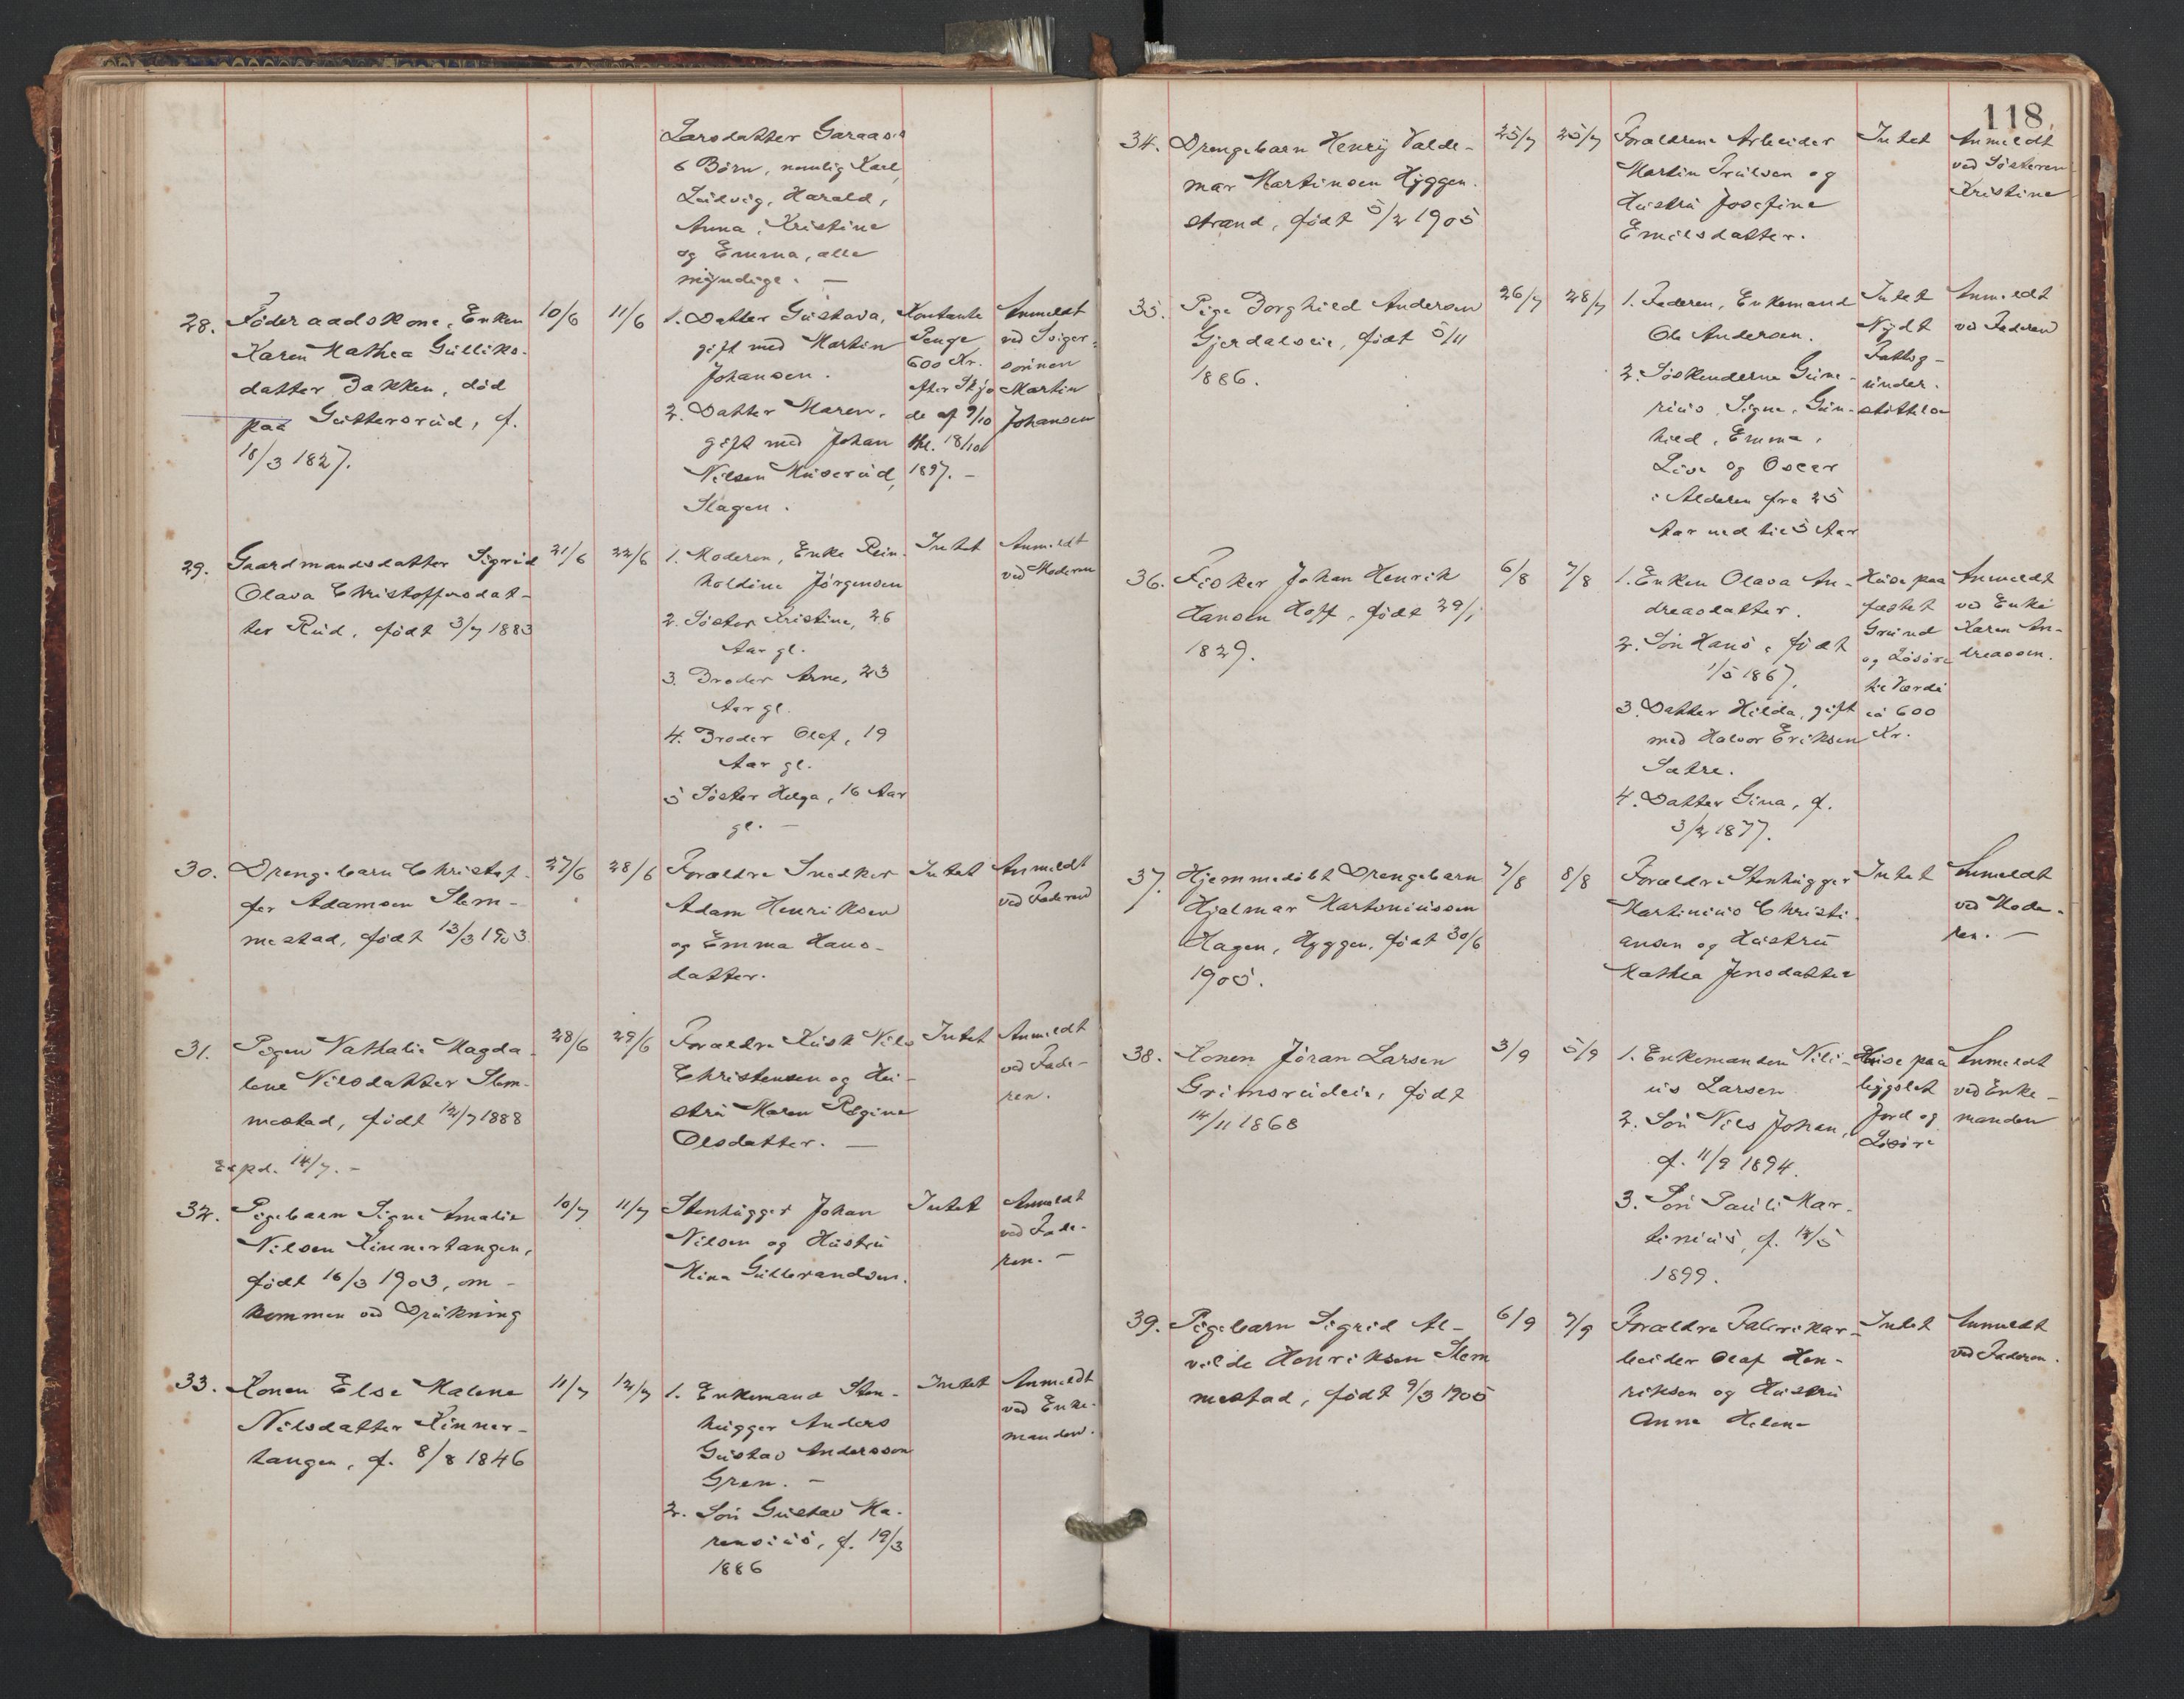 Larsdatter Garaas.
6 Børn, nemlig Karl,
Ludvig, Harald,
Anna, Kristine
og Emma, alle
myndige. —
28. Føderaadskone, Enken
Karen Mathea Gulliks-
datter Bakken, död
paa Guttersrud, f.
18/3 1827.
10/6
11/6
1. Datter Gustava,
gift med Martin
Johansen.
2. Datter Maren,
gift med Johan
Nilsen Huserud,
Slagen.
Kontante
Penge
600 Kr.
efter Skjö
de af 9/10
thl. 18/10
1897. —
Anmeldt
ved Sviger-
sönnen
Martin
Johansen
29. Gaardmandsdatter Sigrid
Olava Christoffersdat-
ter Rud, født 3/7 1883
21/6
22/6
1. Moderen, Enke Rein-
holdine Jörgensen
2. Söster Kristine, 26
Aar gl.
3. Broder Arne, 23
Aar gl.
4. Broder Olaf, 19
Aar gl.
5 Söster Helga, 16 Aar
gl. —
Intet
Anmeldt
ved Moderen
30. Drengebarn Christof-
fer Adamsen Slem-
mestad, født 13/3 1903.
27/6
28/6
Forældre Snedker
Adam Henriksen
og Emma Hans-
datter.
Intet
Anmeldt
ved Faderen
31. Pigen Nathalie Magda-
lene Nilsdatter Slem-
mestad, födt 12/7 1888
Expd. 14/7. —
28/6
29/6
Forældre Kusk Nils
Christensen og Hu-
stru Maren Regine
Olsdatter. —
Intet
Anmeldt
ved Fade-
ren.
32. Pigebarn Signe Amalie
Nilsen Kinnertangen,
født 16/3 1903, om-
kommen ved Drukning
10/7
11/7
Stenhugger Johan
Nilsen og Hustru
Mina Gulbrandsen.
Intet
Anmeldt
ved Fade-
ren. —
33. Konen Else Malene
Nilsdatter Kinner-
tangen, f. 8/8 1846
11/7
12/7
1. Enkemand Sten-
hugger Anders
Gustav Andersson
Gren. —
2. Søn Gustav Ma-
rensius, f. 19/3
1886
Intet
Anmeldt
ved Enke-
manden.
118.
34. Drengebarn Henry Valde-
mar Martinsen Hyggen-
strand, født 5/2 1905
25/7
25/7
Forældrene Arbeider
Martin Trulsen og
Hustru Josefine
Emilsdatter.
Intet
Anmeldt
ved Søsteren
Kristine
35. Pige Borghild Andersen
Gjerdalseie, født 5/11
1886.
26/7
28/7
1. Faderen, Enkemand
Ole Andersen.
2. Søskenderne Gune-
rius, Signe, Gun-
hild, Emma,
Live og Oscar
i Alderen fra 25
Aar ned til 5 Aar
Intet
Nydt
Fattig-
under-
støttelse
Anmeldt
ved Faderen
36. Fisker Johan Henrik
Hansen Hoff, født 29/1
1829.
6/8
7/8
1. Enken Olava An-
dreasdatter.
2. Søn Hans, født
1/5 1867.
3. Datter Hilda, gift
med Halvor Eriksen
Sætre.
4. Datter Gina, f.
3/2 1877.
Huse paa
fæstet
Grund
og Løsöre
til Værdi
ca 600
Kr.
Anmeldt
ved Enke
Karen An-
dreassen.
37. Hjemmedøbt Drengebarn
Hjalmar Martiniussen
Hagen, Hyggen, født 30/6
1905.
7/8
8/8
Forældre Stenhugger
Martinius Christi-
ansen og Hustru
Mathea Jensdatter
Intet
Anmeldt
ved Mode-
ren. —
38. Konen Jöran Larsen
Grimsrudeie, født
14/11 1868
3/9
5/9
1. Enkemanden Nili-
us Larsen
2. Søn Nils Johan,
f. 11/9 1894.
3. Søn Pauli Mar-
tinius, f. 14/5
1899.
Huse paa
bygslet
Jord og
Løsöre
Anmeldt
ved Enke-
manden
39. Pigebarn Sigrid Al-
vilde Henriksen Slem
mestad, født 9/3 1905
6/9
7/9
Forældre Fabrikar-
beider Olaf Hen-
riksen og Hustru
Anna Helene
Intet
Anmeldt
ved Faderen.